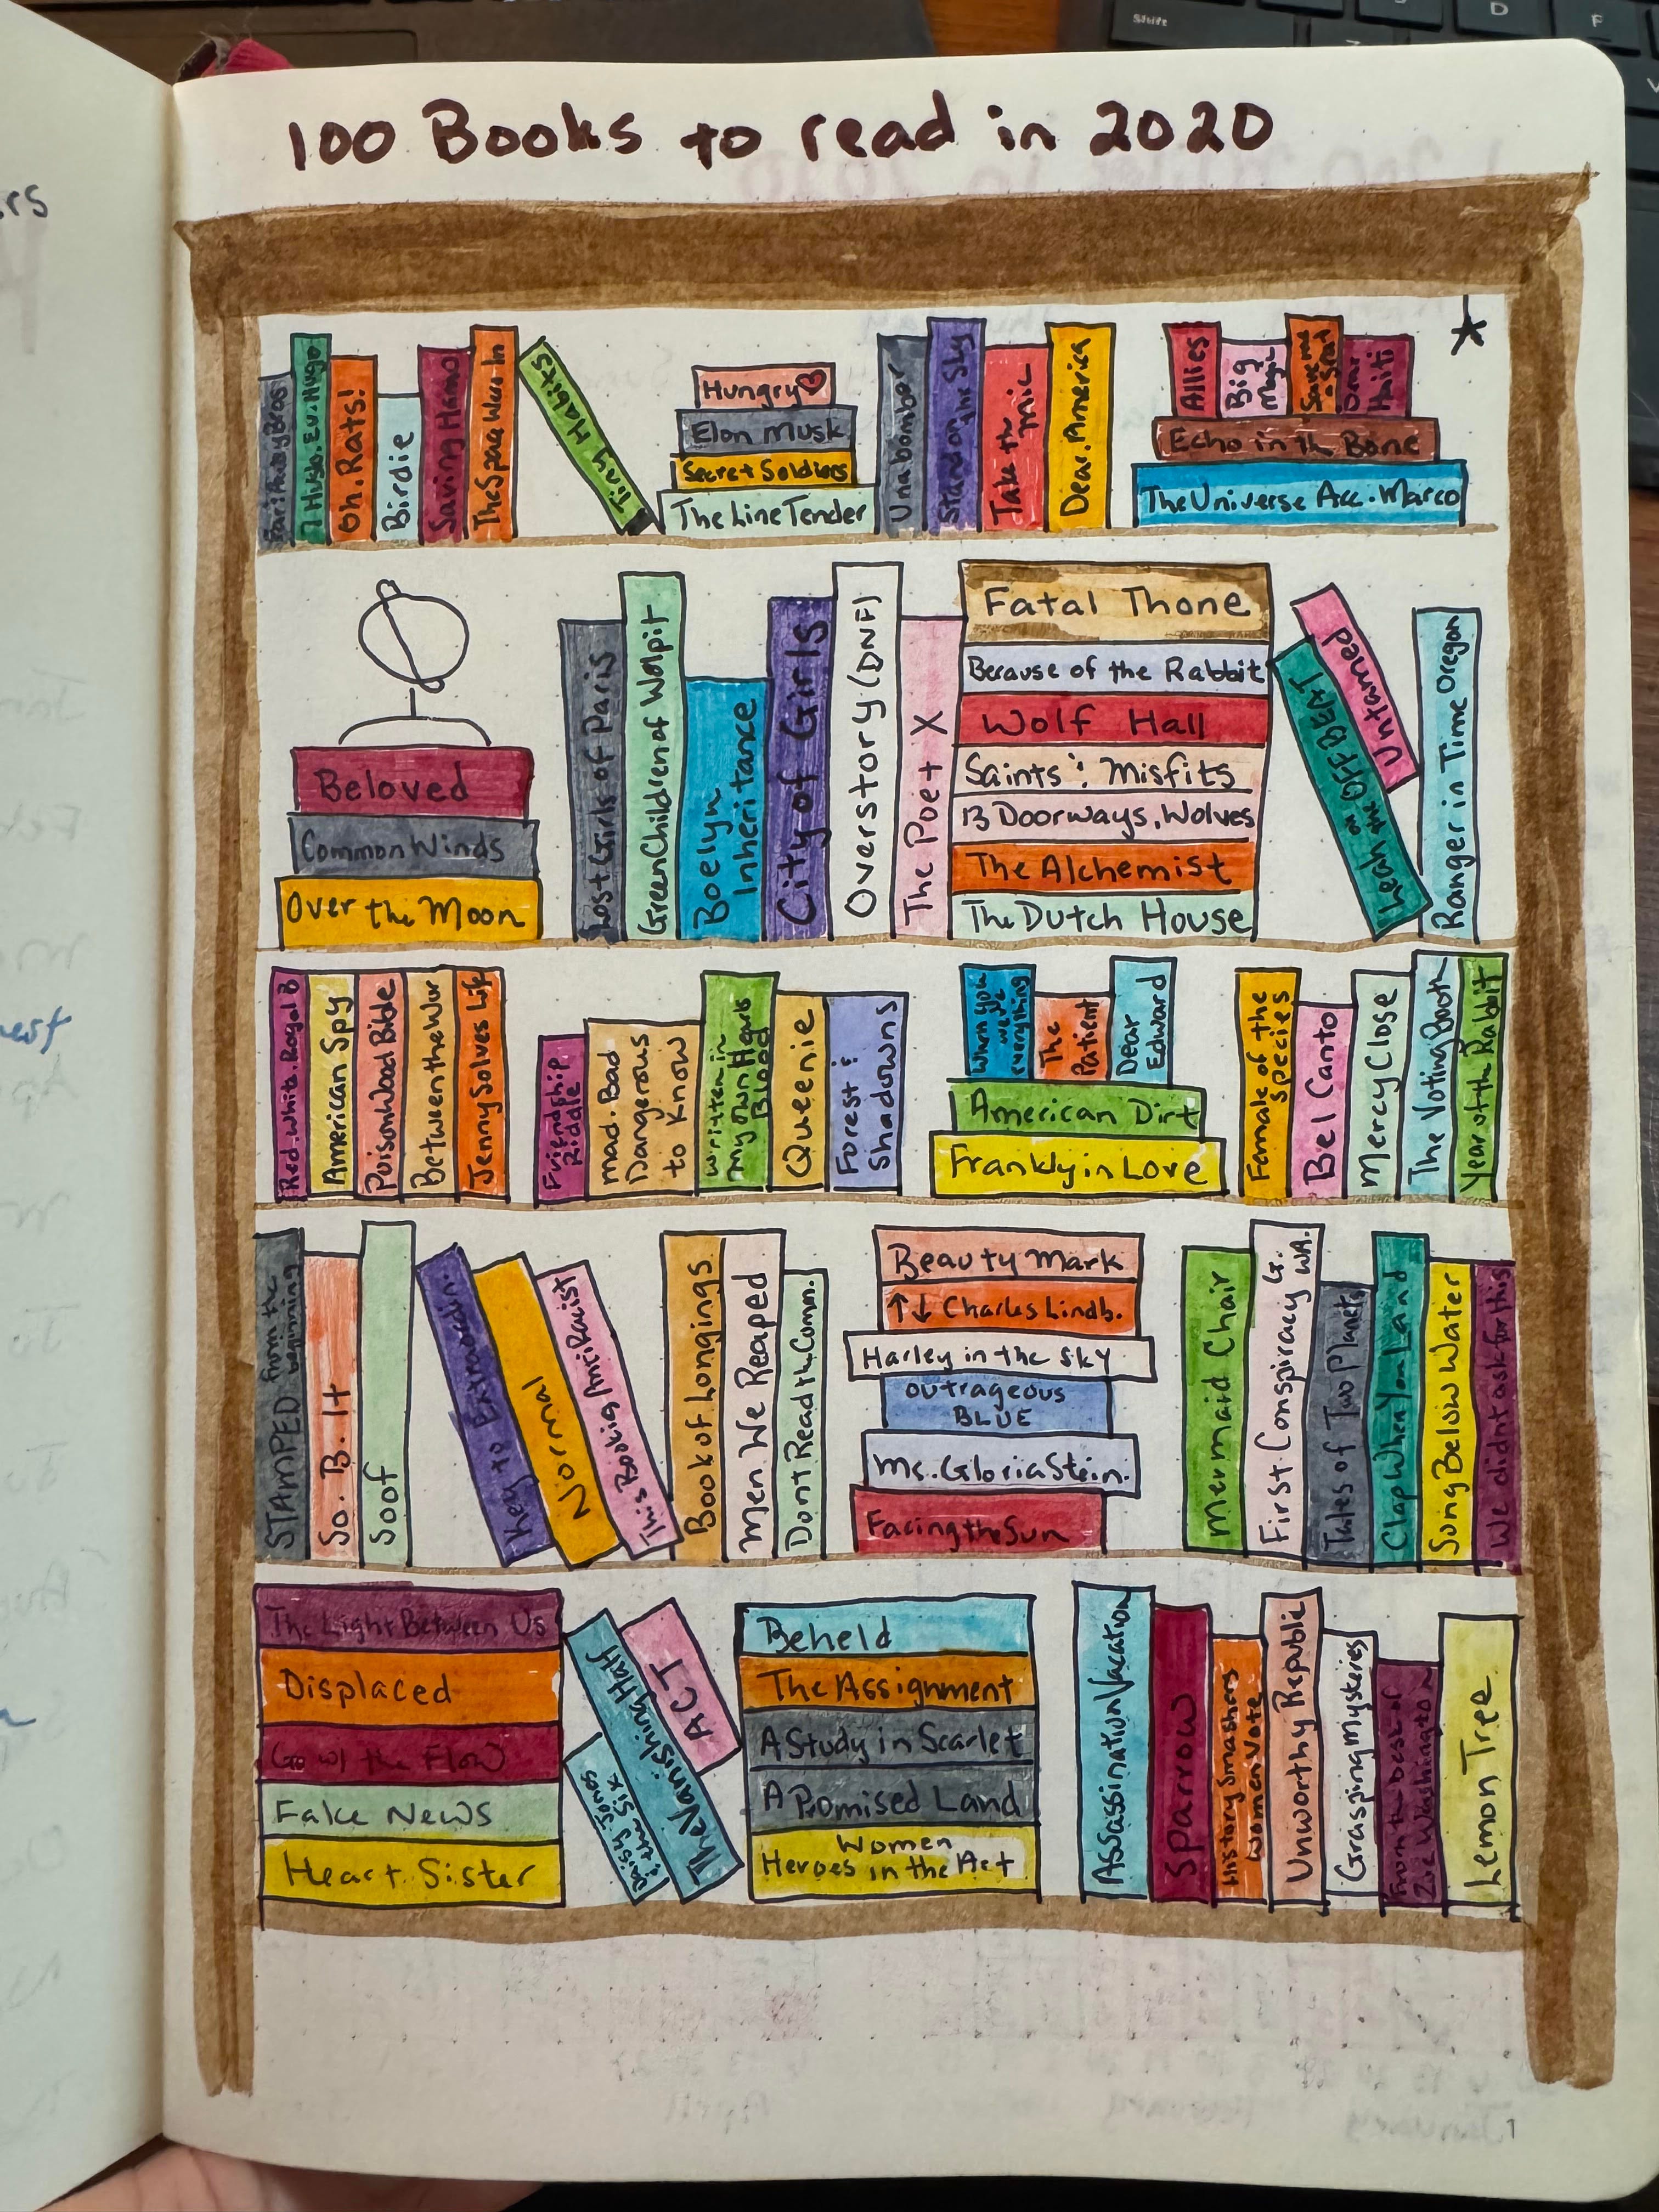 100 Books to read in 2020
Oh. Rats!
Birdie
Saving Hano
The Space Were In
Tiny Habits
Hungry
Elon Musk
Secret Soldiers
The Line Tender
Unabomber
Stand on the Sky
Take the Mic
Dear. America
Allies
Big Magic
Save me a Seat
Dear Haiti
Echo in the Bone
The Universe Acc. Marco
Beloved
Common Winds
Over the Moon
Lost Girls of Paris
Green Children of Wolpit
Boelyn Inheritance
City of Girls
Overstory (DNF)
The Poet X
Fatal Thone
Because of the Rabbit
Wolf Hall
Saints & Misfits
13 Doorways, Wolves
The Alchemist
The Dutch House
Leah on the OFF BEAT
Untamed
Ranger in Time Oregon
Red. White. Royal B
American Spy
PoisonWood Bible
Between the Wur
Jenny Solves Life
Friendship Riddle
mad. Bad Dangerous to Know
Written in My Own Hearts Blood
Queenie
Forest & Shadows
When you were everything
The Patient
Dear Edward
American Dirt
Frankly in Love
Female of the Species
Bel Canto
Mercy Close
The Voting Booth
Year of the Rabbit
STAMPED from the beginning
So. B. It
Soof
Key to Extraordin.
Normal
This Book is AntiRacist
Book of Longings
Men We Reaped
Dont Read the Comm.
Beauty Mark
↑↓ Charles Lindb.
Harley in the Sky
outrageous
BLUE
Ms. Gloria Stein.
Facing the Sun
Mermaid Chair
First Conspiracy G. WA.
Tales of Two Planets
Clap When You Land
Song Below Water
We didnt ask for this
The Light Between Us
Displaced
Go w/ the Flow
Fake News
Heart Sister
Daisy Jones & the Six
The Vanishing Half
ACT
Beheld
The Assignment
A Study in Scarlet
A Promised Land
Women
Heroes in the Art
Assassination Vacation
Sparrow
History Smashers Women Vote
Unworthy Republic
Grasping Mysteries
From the Desk of Zoe Washington
Lemon Tree
1
Shift
D
F